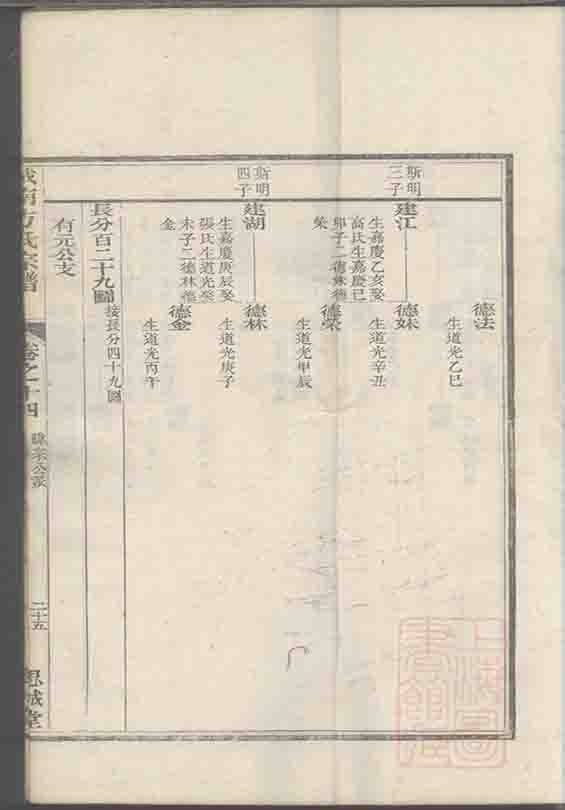 德法
生道光乙巳
斯明
三子
建江
生嘉慶乙亥娶
高氏生嘉慶己
卯子二德妹德
榮
德妹
生道光辛丑
德榮
生道光甲辰
斯明
四子
建湖
生嘉慶庚辰娶
張氏生道光癸
未子二德林德
金
德林
生道光庚子
德金
生道光丙午
長分百二十九圖
接長分四十九圖
有元公支
城南方氏宗譜
卷之十四
二十五
思誠堂
上海圖
書館藏